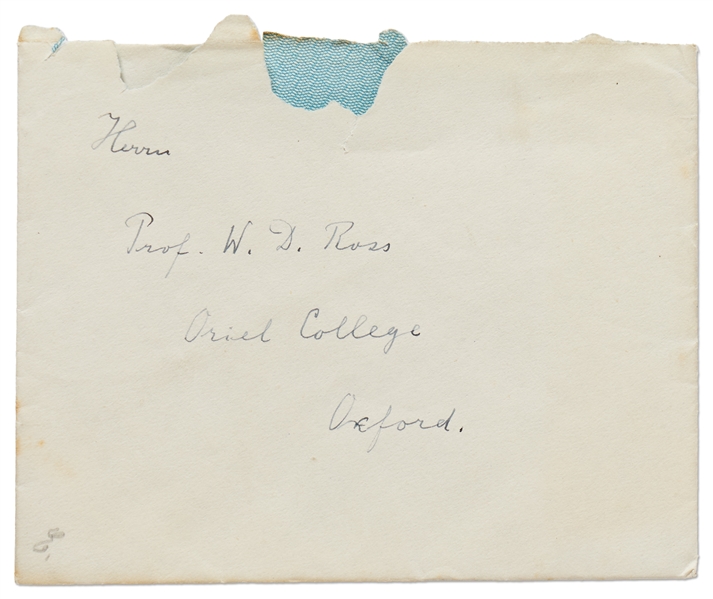 Herrn
Prof. W. D. Ross
Oriel College
Oxford.